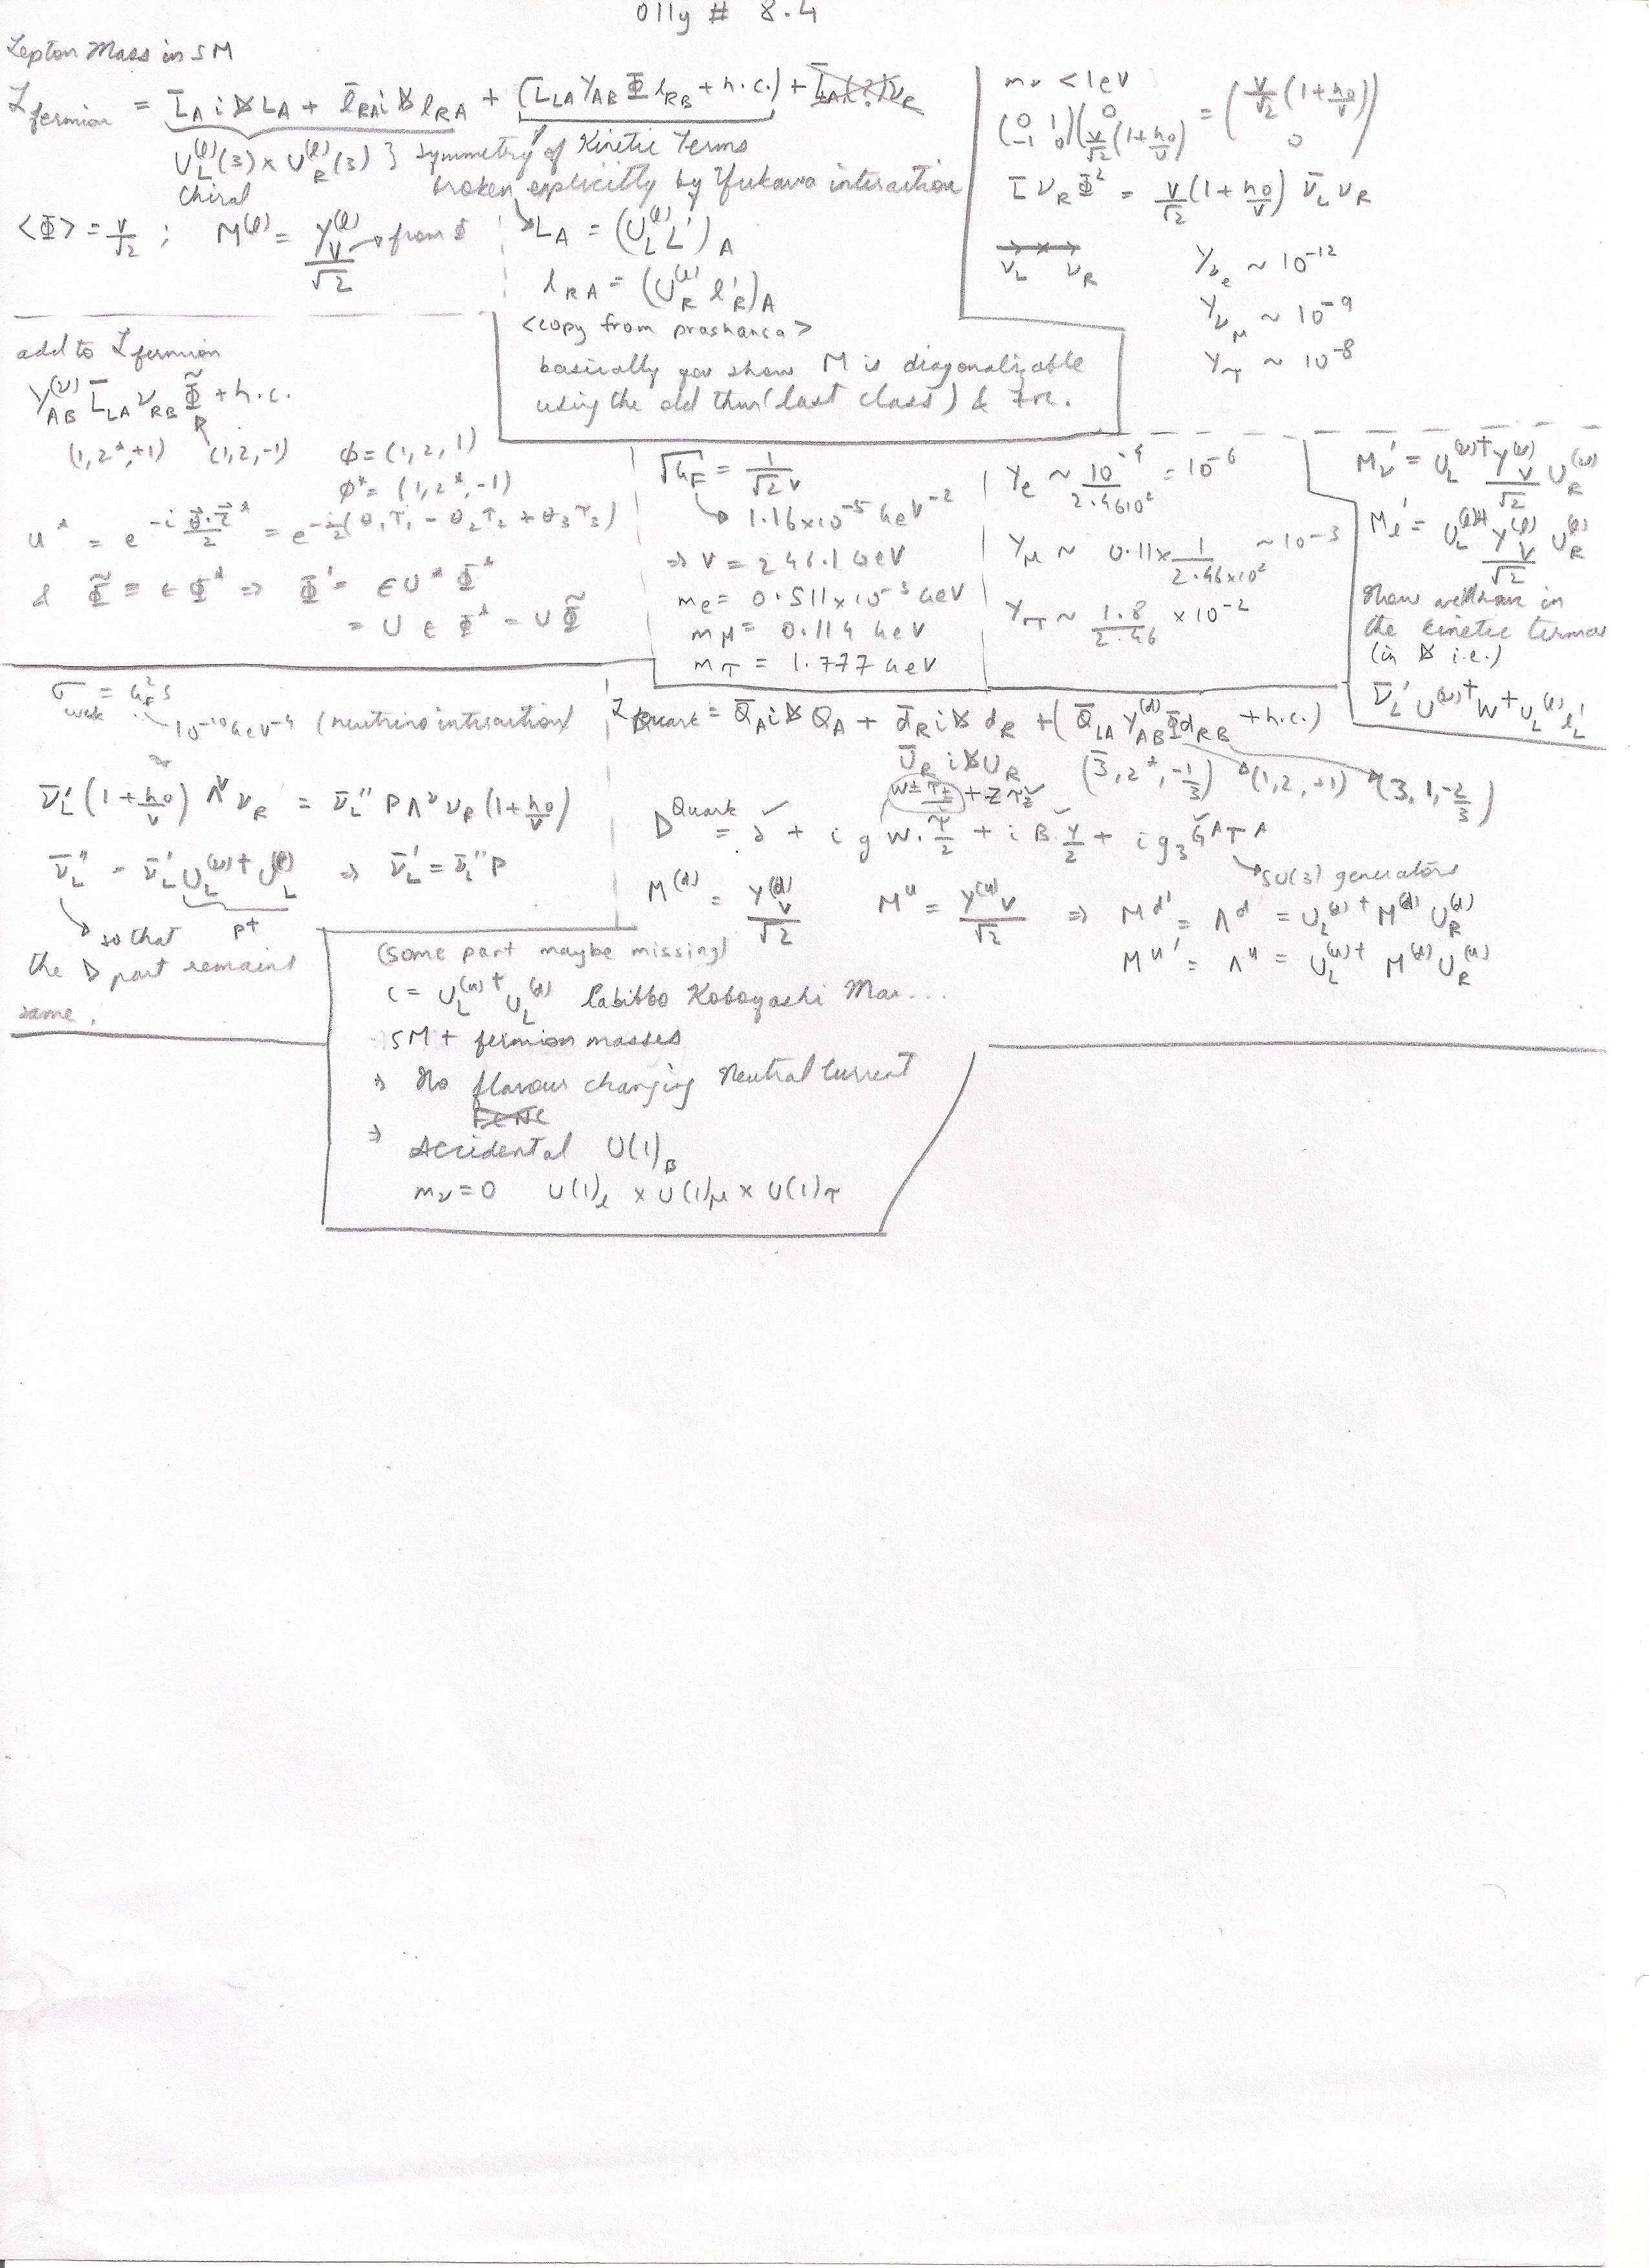 Olly # 8.4
Lepton Mass in SM
ℒ_fermion = L̄_A i D̸ L_A + l̄_RA i D̸ l_RA + (L̄_LA Y_AB Φ l_RB + h.c.) +
U_L^(l)(3) × U_R^(l)(3) } symmetry of Kinetic Terms
Chiral broken explicitly by Yukawa interaction
<Φ> = v/√2 ; M^(l) = Y^(l) v/√2 → from Φ
L_A = (U_L^(l) L')_A
l_RA = (U_R^(l) l'_R)_A
<copy from prashanca>
basically you show M is diagonalizable
using the old thm (last class) & Fre.
mν < 1eV
(0 1; -1 0)(0; v/√2 (1+h0/v)) = (v/√2 (1+h0/v); 0)
L̄ ν_R Φ̃ = v/√2 (1+h0/v) ν̄_L ν_R
ν_L ν_R
Y_ν_e ~ 10^-12
Y_ν_μ ~ 10^-9
Y_τ ~ 10^-8
add to ℒ_fermion
Y_AB^(ν) L̄_LA ν_RB Φ̃ + h.c.
(1,2*,+1) (1,2,-1) φ = (1,2,1)
φ* = (1,2*,-1)
u* = e^(-i θ⃗·τ⃗*/2) = e^(-i/2 (θ1τ1 - θ2τ2 + θ3τ3))
& Φ̃ ≡ ε Φ* ⇒ Φ̃' = ε U* Φ*
= U ε Φ* = U Φ̃
√G_F = 1/(√2 v)
↳ 1.16×10^-5 GeV^-2
⇒ v = 246.1 GeV
m_e = 0.511×10^-3 GeV
m_μ = 0.114 GeV
m_τ = 1.777 GeV
Y_e ~ 10^-4/2.4610^2 = 10^-6
Y_μ ~ 0.11 × 1/2.46×10^2 ~ 10^-3
Y_τ ~ 1.8/2.46 × 10^-2
M_ν' = U_L^(ν)† Y^(ν) v/√2 U_R^(ν)
M_l' = U_L^(l)† Y^(l) v/√2 U_R^(l)
Now will have in
the kinetic terms
(in D̸ i.e.)
ν̄_L' U^(ν)† W+ U_L^(l) l_L'
σ_weak = G_F^2 s
10^-10 GeV^-4 (neutrino interaction)
ν̄_L' (1+h0/v) Λ^ν ν_R = ν̄_L'' P Λ^ν ν_R (1+h0/v)
ν̄_L'' = ν̄_L' U_L^(ν)† U_L^(l) ⇒ ν̄_L' = ν̄_L'' P
P†
so that
the D part remains
same.
ℒ_Quark = Q̄_A i D̸ Q_A + d̄_R i D̸ d_R + (Q̄_LA Y_AB^(d) Φ d_RB + h.c.)
Ū_R i D̸ U_R (3̄, 2*, -1/3) (1,2,+1) (3,1,-2/3)
W± τ±/2 + Z τ3/2
D^Quark = ∂ + i g W·τ/2 + i B Y/2 + i g3 G^A T^A
SU(3) generators
M^(d) = Y^(d) v/√2 M^u = Y^(u) v/√2 ⇒ M^d' = Λ^d = U_L^(d)† M^(d) U_R^(d)
M^u' = Λ^u = U_L^(u)† M^(u) U_R^(u)
(some part maybe missing)
C = U_L^(u)† U_L^(d) Cabibbo Kobayashi Mas...
SM + fermion masses
⇒ No flavour changing Neutral Current
FCNC
⇒ Accidental U(1)_B
mν = 0 U(1)_e × U(1)_μ × U(1)_τ